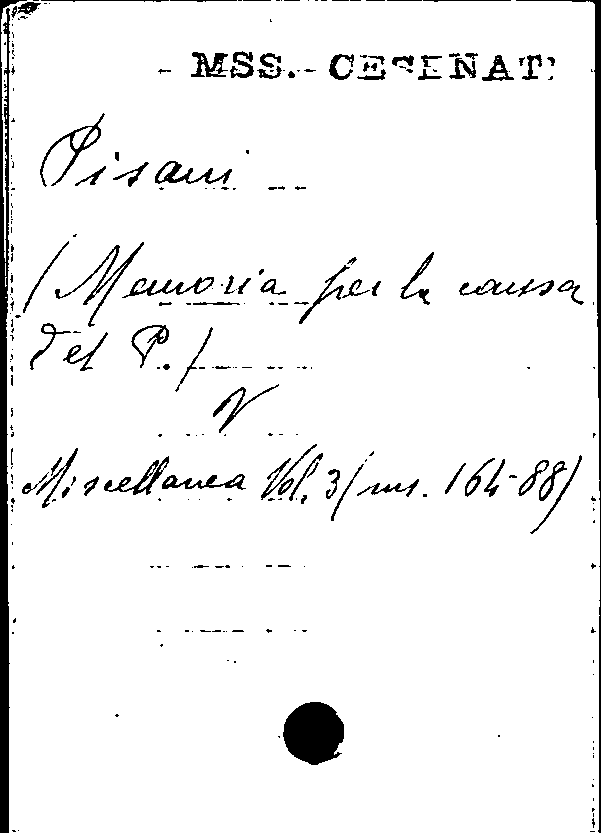 MSS. CESENATI
Pisani
(Memoria per la causa
del P.)
V
Miscellanea Vol. 3 (ms. 164-88)